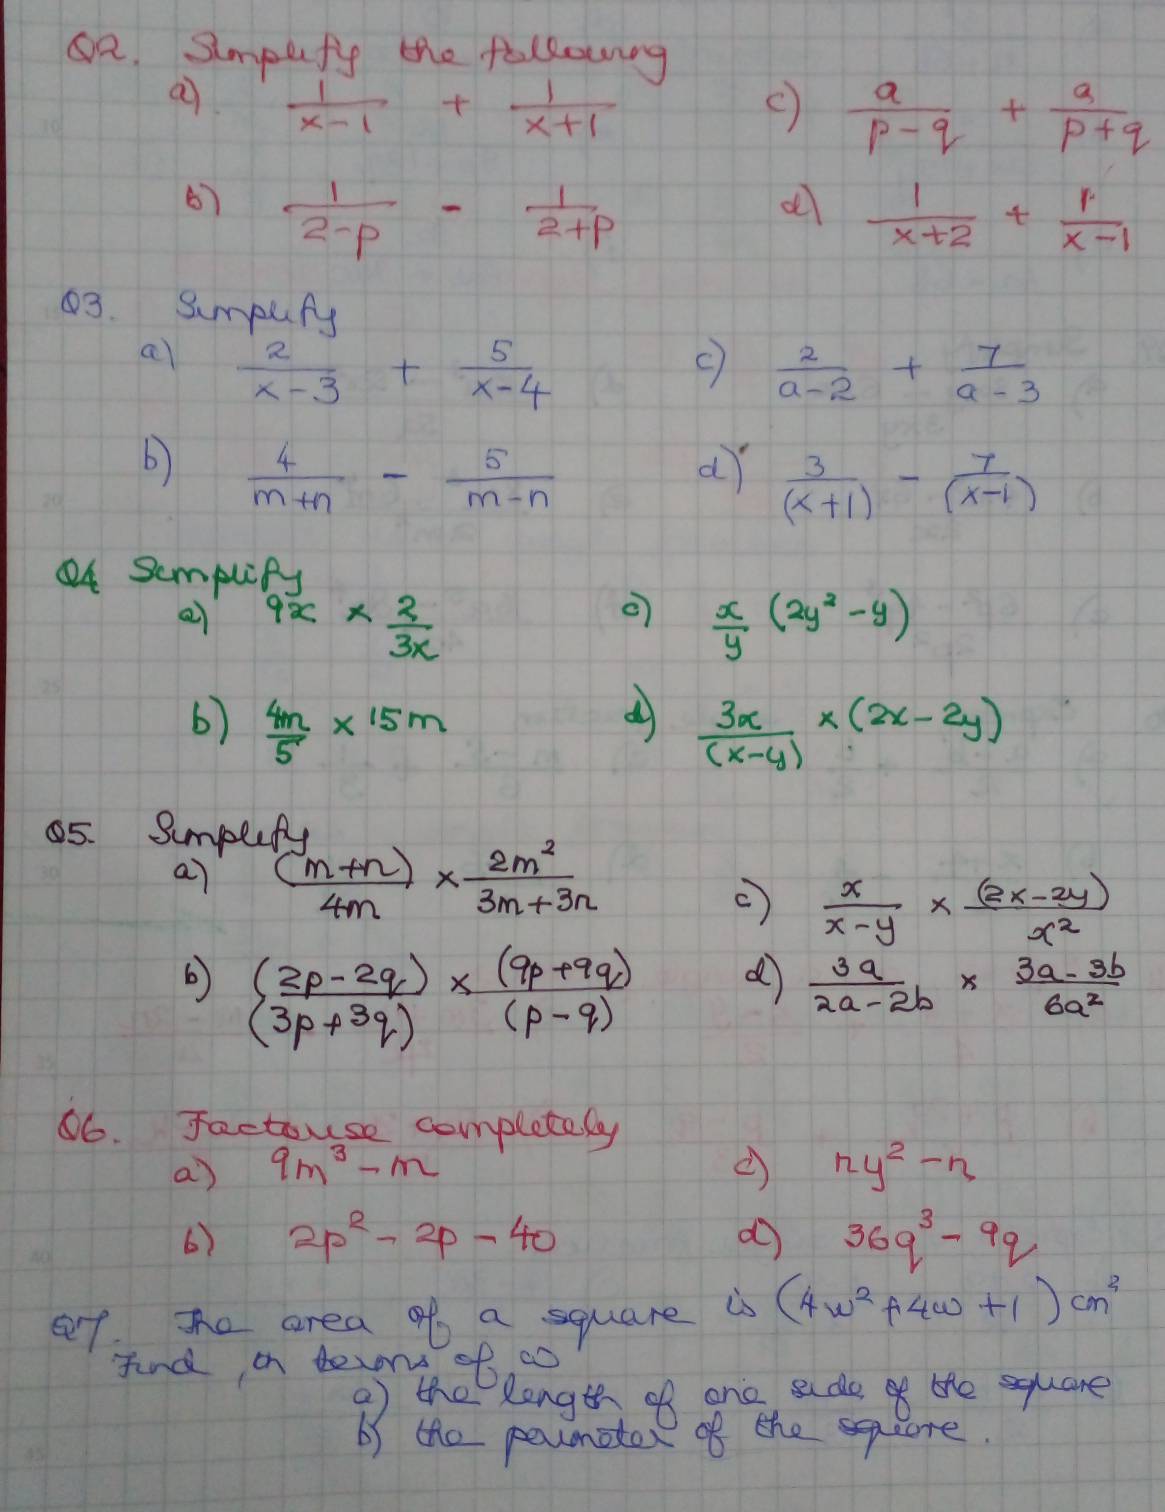 Q2. Simplify the following
a) 1/(x-1) + 1/(x+1) c) a/(p-q) + a/(p+q)
b) 1/(2-p) - 1/(2+p) d) 1/(x+2) + 1/(x-1)
Q3. Simplify
a) 2/(x-3) + 5/(x-4) c) 2/(a-2) + 7/(a-3)
b) 4/(m+n) - 5/(m-n) d) 3/(x+1) - 7/(x-1)
Q4 Simplify
a) 9x × 2/3x c) x/y (2y² - y)
b) 4m/5 × 15m d) 3x/(x-y) × (2x-2y)
Q5. Simplify
a) (m+n)/4m × 2m²/(3m+3n) c) x/(x-y) × (2x-2y)/x²
b) (2p-2q)/(3p+3q) × (9p+9q)/(p-q) d) 3a/(2a-2b) × (3a-3b)/6a²
Q6. Factorise completely
a) 9m³ - m c) ny² - n
b) 2p² - 2p - 40 d) 36q³ - 9q
Q7. The area of a square is (4w² + 4w + 1) cm²
Find, in terms of w
a) the length of one side of the square
b) the perimeter of the square.